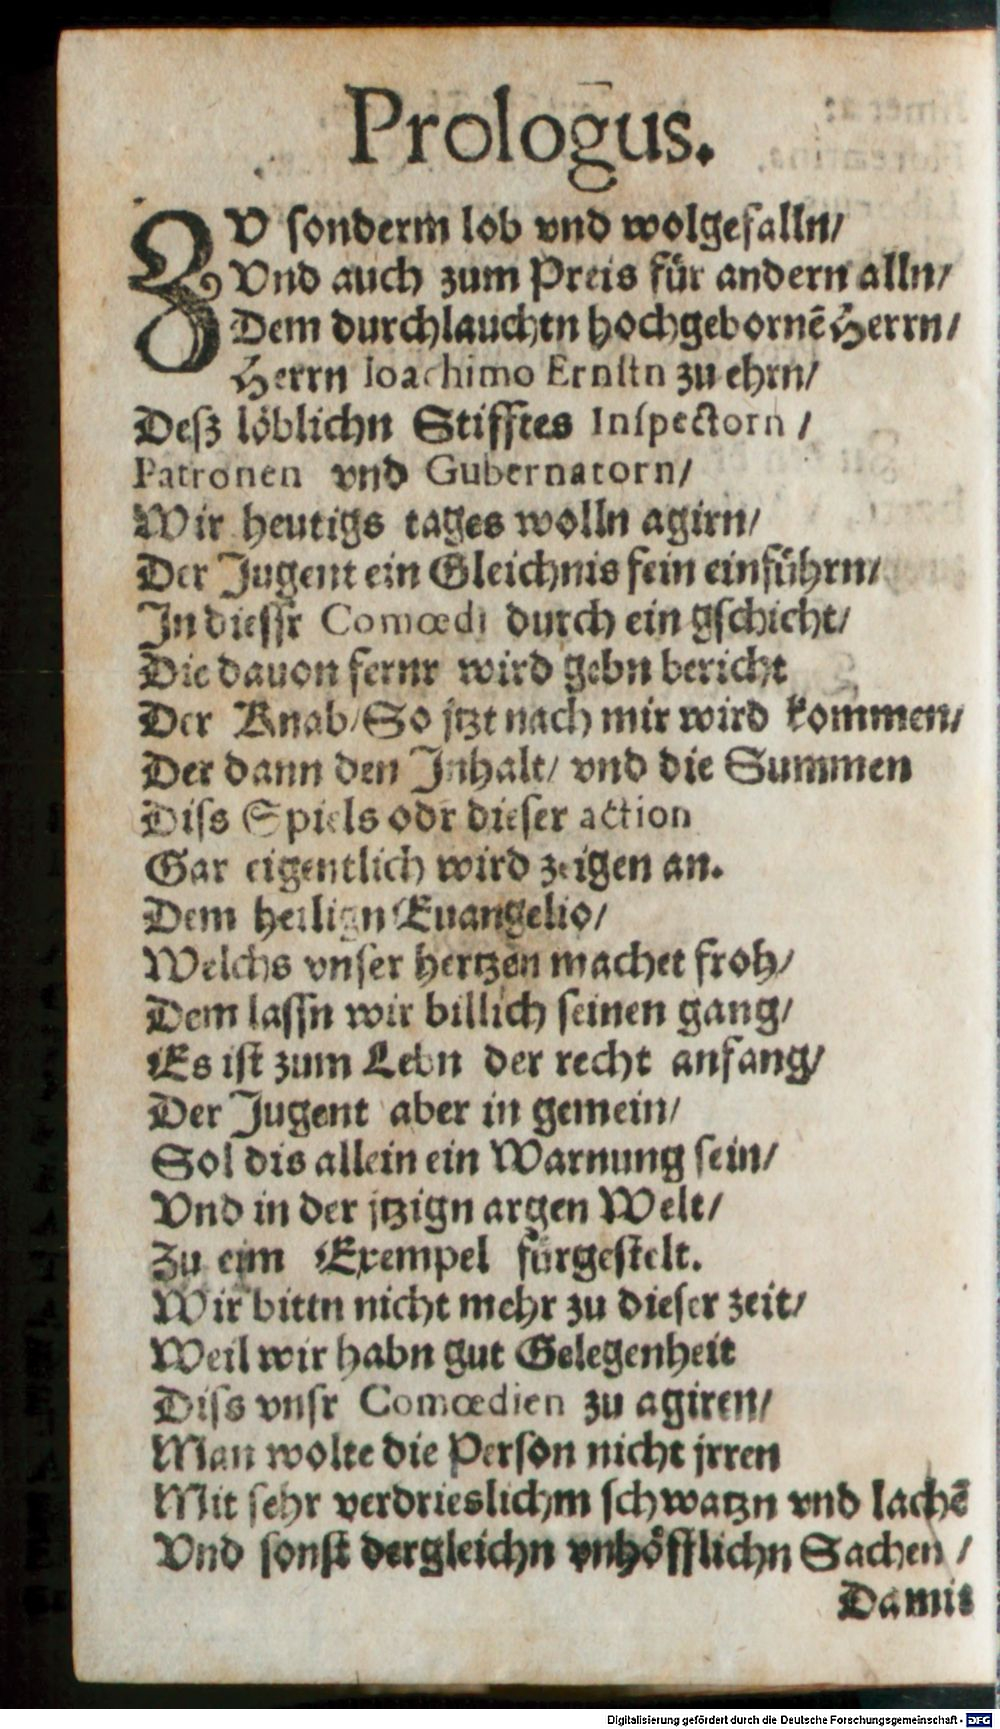 Prologus.
ZV sonderm lob vnd wolgefalln/
Vnd auch zum Preis für andern alln/
Dem durchlauchtn hochgebornē Herrn/
Herrn Ioachimo Ernstn zu ehrn/
Desz löblichn Stifftes Inspectorn /
Patronen vnd Gubernatorn/
Wir heutigs tages wolln agirn/
Der Jugent ein Gleichnis fein einführn/
In diessr Comœdi durch ein gschicht/
Die dauon fernr wird gebn bericht
Der Knab/So jtzt nach mir wird kommen/
Der dann den Inhalt/ vnd die Summen
Diss Spiels odr dieser action
Gar eigentlich wird zeigen an.
Dem heilign Euangelio/
Welchs vnser hertzen machet froh/
Dem lassn wir billich seinen gang/
Es ist zum Lebn der recht anfang/
Der Jugent aber in gemein/
Sol dis allein ein Warnung sein/
Vnd in der jtzign argen Welt/
Zu eim Exempel fürgestelt.
Wir bittn nicht mehr zu dieser zeit/
Weil wir habn gut Gelegenheit
Diss vnsr Comœdien zu agiren/
Man wolte die Person nicht jrren
Mit sehr verdrieslichm schwatzn vnd lachē
Vnd sonst dergleichn vnhöfflichn Sachen /
Damit
Digitalisierung gefördert durch die Deutsche Forschungsgemeinschaft - DFG